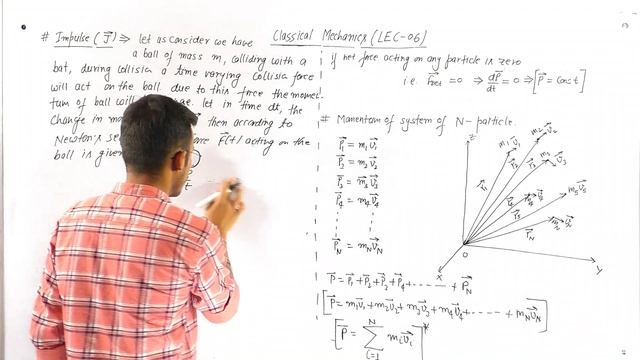 Classical Mechanics (LEC-06)
# Impulse (J) ⇒ let us consider we have
a ball of mass m, colliding with a
bat, during collision a time varying collision force
will act on the ball due to this force the momen-
tum of ball will let in time dt, the
change in then according to
Newton's F(t) acting on the
ball is given
if net force acting on any particle is zero
i.e. F⃗net = 0 ⇒ dP⃗/dt = 0 ⇒ [P⃗ = Const]
# Momentum of system of N-particle.
P⃗₁ = m₁v⃗₁
P⃗₂ = m₂v⃗₂
P⃗₃ = m₃v⃗₃
P⃗₄ = m₄v⃗₄
P⃗N = mNv⃗N
Z
m₁ v⃗₁
m₂ v⃗₂
m₃ v⃗₃
m₅ v⃗₅
P⃗N
O
X
Y
P⃗ = P⃗₁ + P⃗₂ + P⃗₃ + P⃗₄ + ...... + P⃗N
[P⃗ = m₁v⃗₁ + m₂v⃗₂ + m₃v⃗₃ + m₄v⃗₄ + ...... + mNv⃗N]
[P⃗ = Σ_{i=1}^{N} mᵢv⃗ᵢ]*